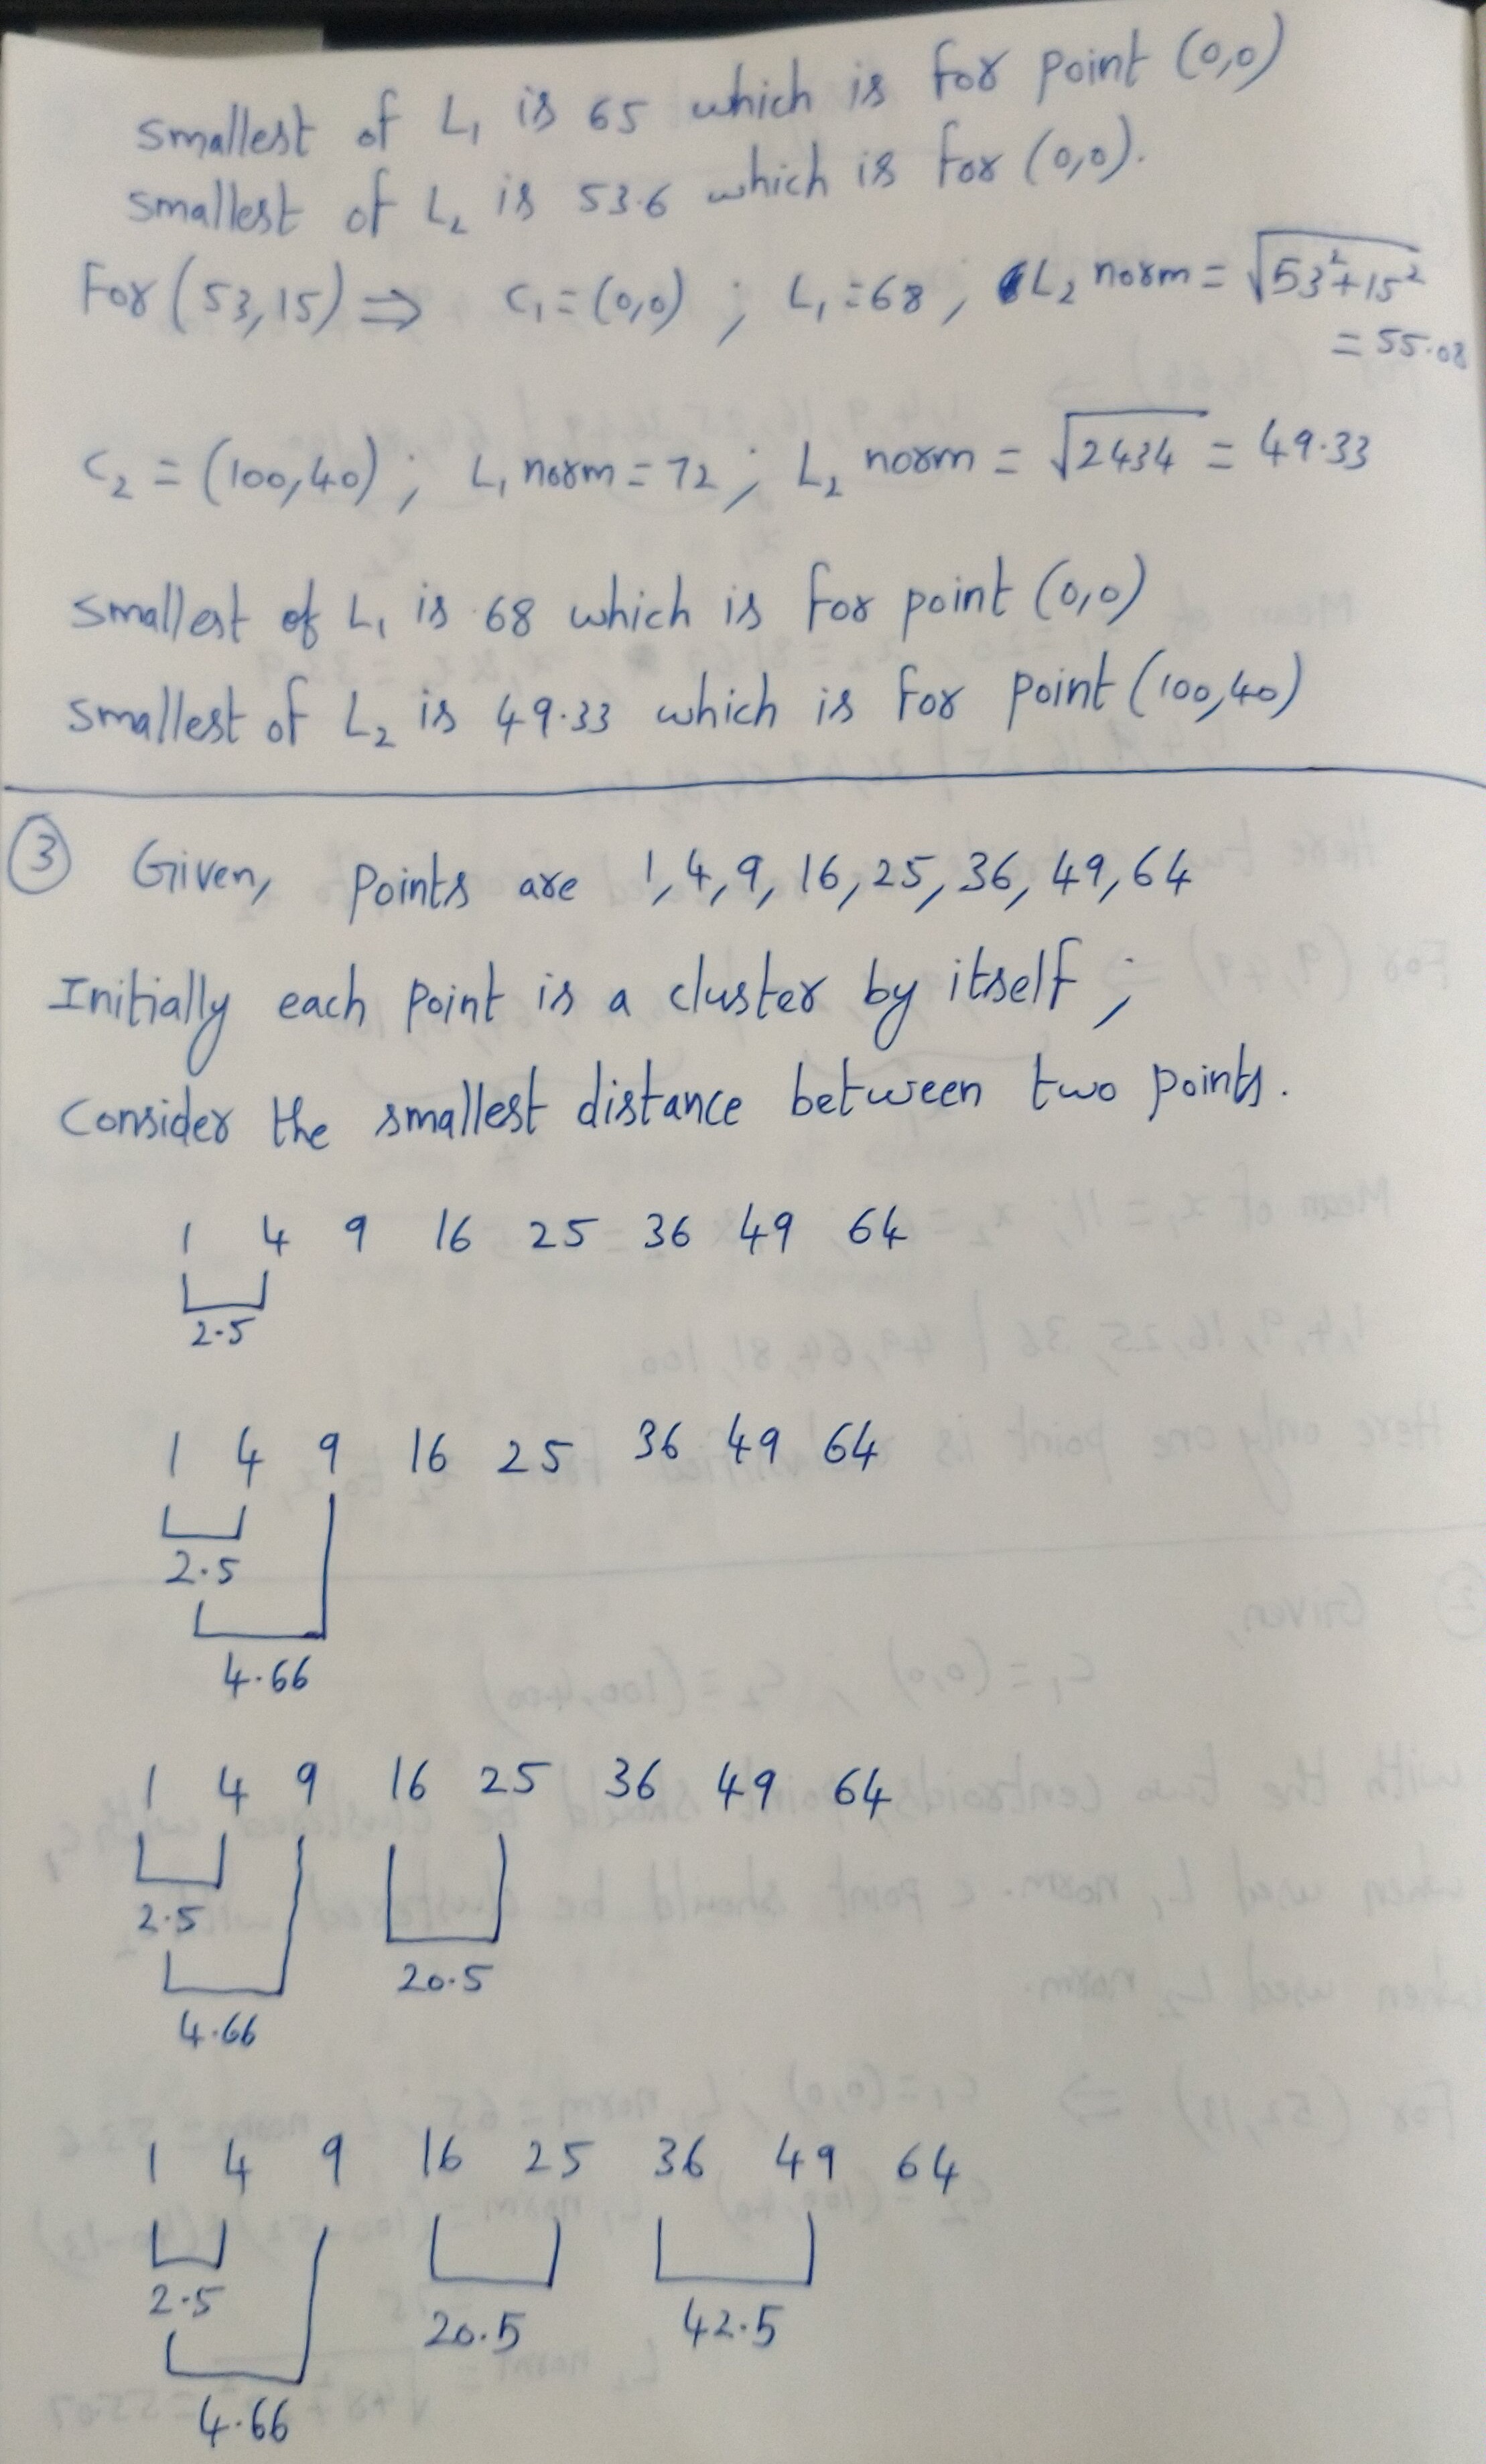 smallest of L₁ is 65 which is for point (0,0)
smallest of L₂ is 53.6 which is for (0,0).
For (53,15) ⇒ c₁ = (0,0) ; L₁ = 68 , L₂ norm = √53²+15²
= 55.08
c₂ = (100,40) ; L₁ norm = 72 ; L₂ norm = √2434 = 49.33
smallest of L₁ is 68 which is for point (0,0)
smallest of L₂ is 49.33 which is for point (100,40)
③ Given, points are 1,4,9,16,25,36,49,64
Initially each point is a cluster by itself ;
Consider the smallest distance between two points.
1 4 9 16 25 36 49 64
2.5
1 4 9 16 25 36 49 64
2.5
4.66
1 4 9 16 25 36 49 64
2.5
20.5
4.66
1 4 9 16 25 36 49 64
2.5 20.5 42.5
4.66